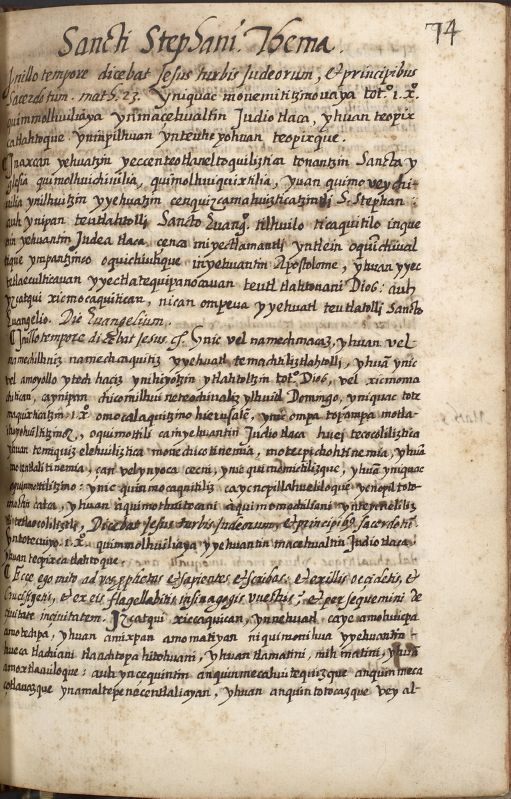 74
Sancti Stephani. Thema.
Inillo tempore dicebat Jesus turbis Judeorum, et principibus
sacerdotum. math. 23. Yniquac monemititzinouaya totº. 1. xº.
quimmolhuiliaya ynmacehualtin Judiotlaca, yhuan teopix
catlahtoque ynimpilhuan ynteuhc yohuan teopixque.
Inaxcan yehuatzin yeccenteotlaneltoquiliztica tonantzin Sancta y
glesia quimolhuichiuilia, quimolhuiquixtilia, yuan quimo vey chi
uilia ynilhuitzin yyehuatzin cenquizcamahuizticatzintli S. Stephan:
auh ynipan teutlahtolli Sancto Euangº. tilhuilo ticaquitilo inque
nin yehuantin Judea tlaca, cenca miyectlamantli yntlein oquichiual
tique ympantzinco oquichiuhque inyehuantin Apostolome, yhuan yyec
tlaeculticauan yyectlatequipanocauan teutl tlahtouani Dios: auh
yzcatqui xicmocaquitican, nican ompeua yyehuatl teutlatolli Sancto
Euangelio. Die Euangelium.
Inillo tempore dicebat Jesus &c. Ynic vel namechmacaz, yhuan vel
namechilhuiz namechcaquitiz yyehuatl temachtiliztlahtolli, yhuā ynic
vel amoyollo ytech haciz ynihiyotzin ytlahtoltzin totº Dios, vel xicmoma
chitican, ca ynipan chicomilhuitl netecchiualiz ylhuitl Domingo, yniquac tote
maquixticatzin. 1. xº. omocalaquitzino hierusalē, ynic ompa topampa motla
, oquimottili cainyehuantin Judiotlaca huei tecocoliliztica
yhuan temiquiz elehuiliztica monechicotinemia, motecpichohtinemia, yhuā
monontzalitinemia, can velynyoca cecni, ynic quinomictilizque, yhuā yniquac
oquimmottilitzino: ynic quinmocaquitiliz ca ycenca pillahuelilloque yenopil toto
catca, yhuan aquinothuitocani aquinomocniliani ynteycneliliz
ytetlaocoliliztli, Dicebat Jesus turbis Judeorum, et principibº sacerdotū.
yntotecuiyo. 1. xº. quimmolhuiliaya yyehuantin macehualtin Judiotlaca:
yhuan teopixcatlahtoque.
Ecce ego mito ad vos prophetas et sapientes, et scribas: et ex illis occidetis, et
Crucifigetis, et ex eis flagellabitis in sinagogis vuestris: et persequemini de
ciuitate inciuitatem. Yzcatqui xiccaquican, ynnehuatl, ca ye amohuicpa
amotechpa, yhuan amixpan amomatiyan niquimonihua yyehuantin
hueca tlachiani tlaachtopa hitohuani, yhuan tlamatini, mihmatini, yhuā
amoxtlacuiloque: auh yncequintin anquinmecahuitequizque anquinmeca
cotlauazque ynamaltepenecentlaliayan, yhuan anquintotocazque vey al-